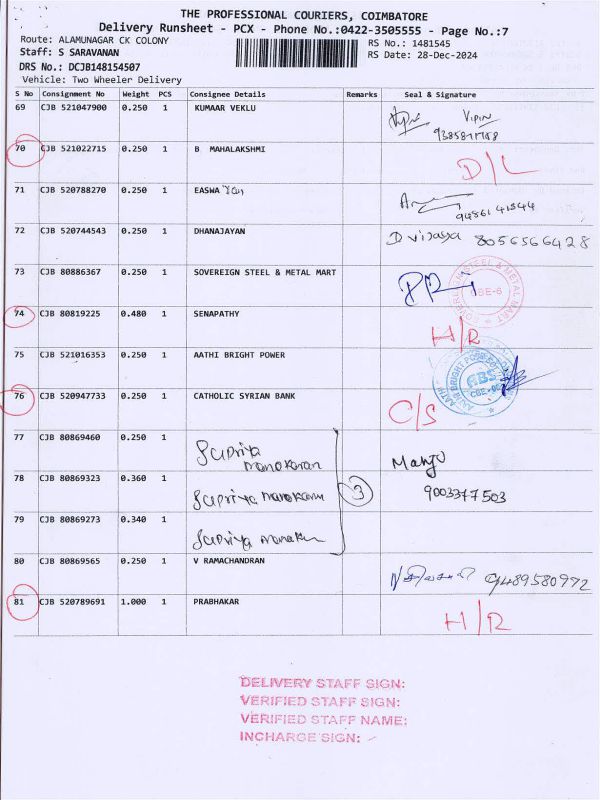 THE PROFESSIONAL COURIERS, COIMBATORE
Delivery Runsheet - PCX - Phone No.:0422-3505555 - Page No.:7
Route: ALAMUNAGAR CK COLONY
RS No.: 1481545
Staff: S SARAVANAN
RS Date: 28-Dec-2024
DRS No.: DCJB148154507
Vehicle: Two Wheeler Delivery
S No Consignment No Weight PCS Consignee Details Remarks Seal & Signature
69 CJB 521047900 0.250 1 KUMAAR VEKLU Vipin
70 CJB 521022715 0.250 1 B MAHALAKSHMI D/L
71 CJB 520788270 0.250 1 EASWA
72 CJB 520744543 0.250 1 DHANAJAYAN D vijaya 8056566428
73 CJB 80886367 0.250 1 SOVEREIGN STEEL & METAL MART CBE-6
74 CJB 80819225 0.480 1 SENAPATHY H/R
75 CJB 521016353 0.250 1 AATHI BRIGHT POWER ABS
76 CJB 520947733 0.250 1 CATHOLIC SYRIAN BANK C/S
77 CJB 80869460 0.250 1 Supriya manokaran Manju
78 CJB 80869323 0.360 1 Supriya manokaran 3 9003377503
79 CJB 80869273 0.340 1 Supriya
80 CJB 80869565 0.250 1 V RAMACHANDRAN 9489580972
81 CJB 520789691 1.000 1 PRABHAKAR H/R
DELIVERY STAFF SIGN:
VERIFIED STAFF SIGN:
VERIFIED STAFF NAME:
INCHARGE SIGN: